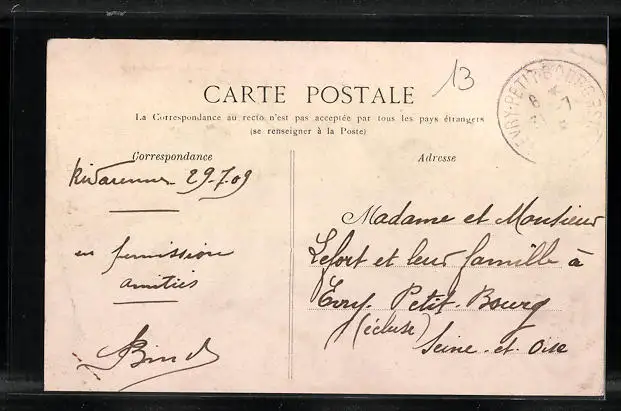 13
CARTE POSTALE
La Correspondance au recto n'est pas acceptée par tous les pays étrangers
(se renseigner à la Poste)
Correspondance
Adresse
Rivarennes 29-7-09
en permission
amitiés
Madame et Monsieur
Lefort et leur famille à
Evry-Petit-Bourg
(écluse)
Seine-et-Oise
EVRY-PETIT-BOURG